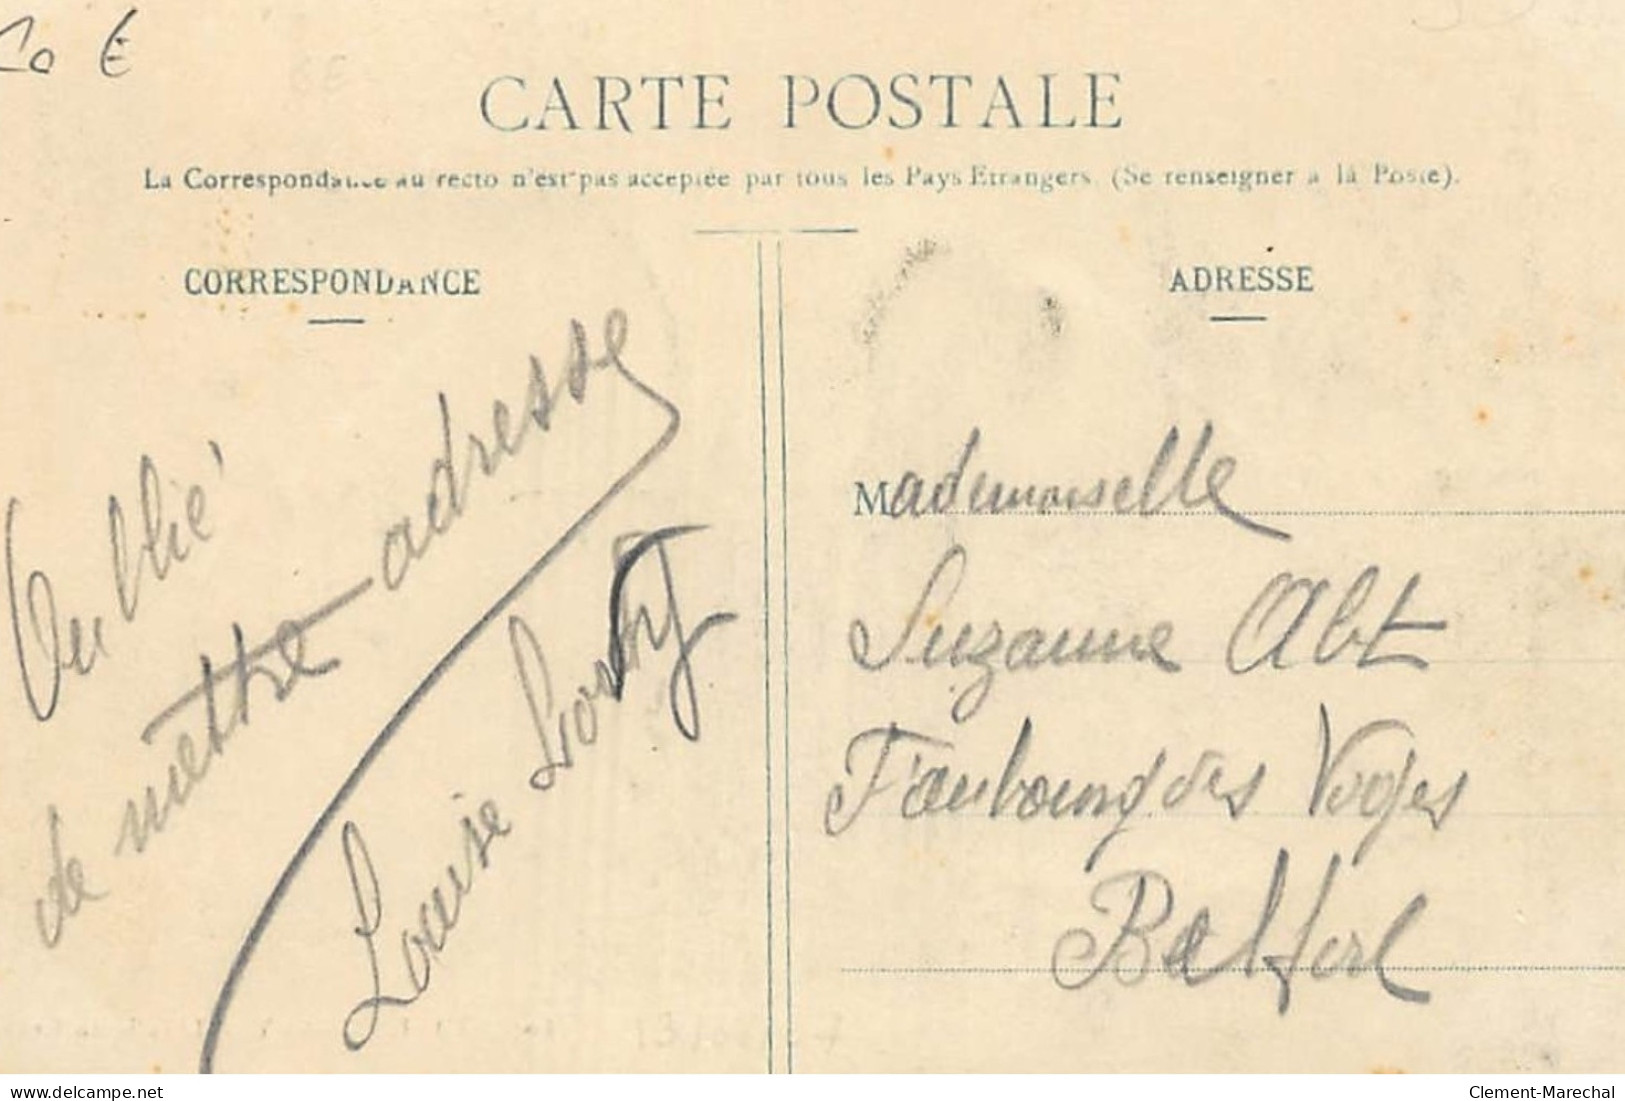 CARTE POSTALE
La Correspondance au recto n'est pas acceptée par tous les Pays Etrangers. (Se renseigner à la Poste).
CORRESPONDANCE
Oublié
de mettre adresse
Louise
ADRESSE
Mademoiselle
Suzanne Abt
Faubourg des Vosges
Belfort
delcampe.net
Clement-Marechal